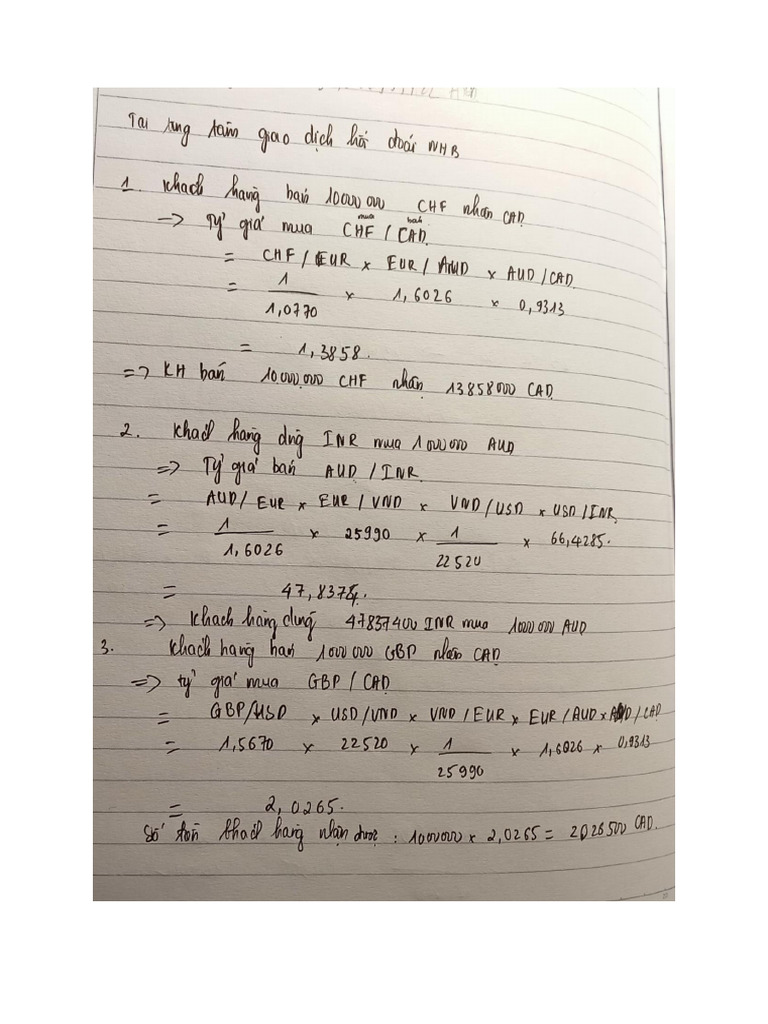 Tại trung tâm giao dịch hối đoái NHB
1. Khách hàng bán 10000000 CHF nhận CAD
→ Tỷ giá mua CHF / CAD
mua bán
= CHF / EUR x EUR / AUD x AUD / CAD
= 1/1,0770 x 1,6026 x 0,9313
= 1,3858.
=> KH bán 10.000.000 CHF nhận 13858000 CAD
2. Khách hàng dùng INR mua 1000000 AUD
=> Tỷ giá bán AUD / INR
= AUD / EUR x EUR / VND x VND / USD x USD / INR
= 1/1,6026 x 25990 x 1/22520 x 66,4285.
= 47,8374.
=> Khách hàng dùng 47837400 INR mua 1000000 AUD
3. Khách hàng bán 1000000 GBP nhận CAD
=> tỷ giá mua GBP / CAD
= GBP/USD x USD/VND x VND / EUR x EUR / AUD x AUD / CAD
= 1,5670 x 22520 x 1/25990 x 1,6026 x 0,9313
= 2,0265.
Số tiền khách hàng nhận được : 1000000 x 2,0265 = 2026500 CAD.